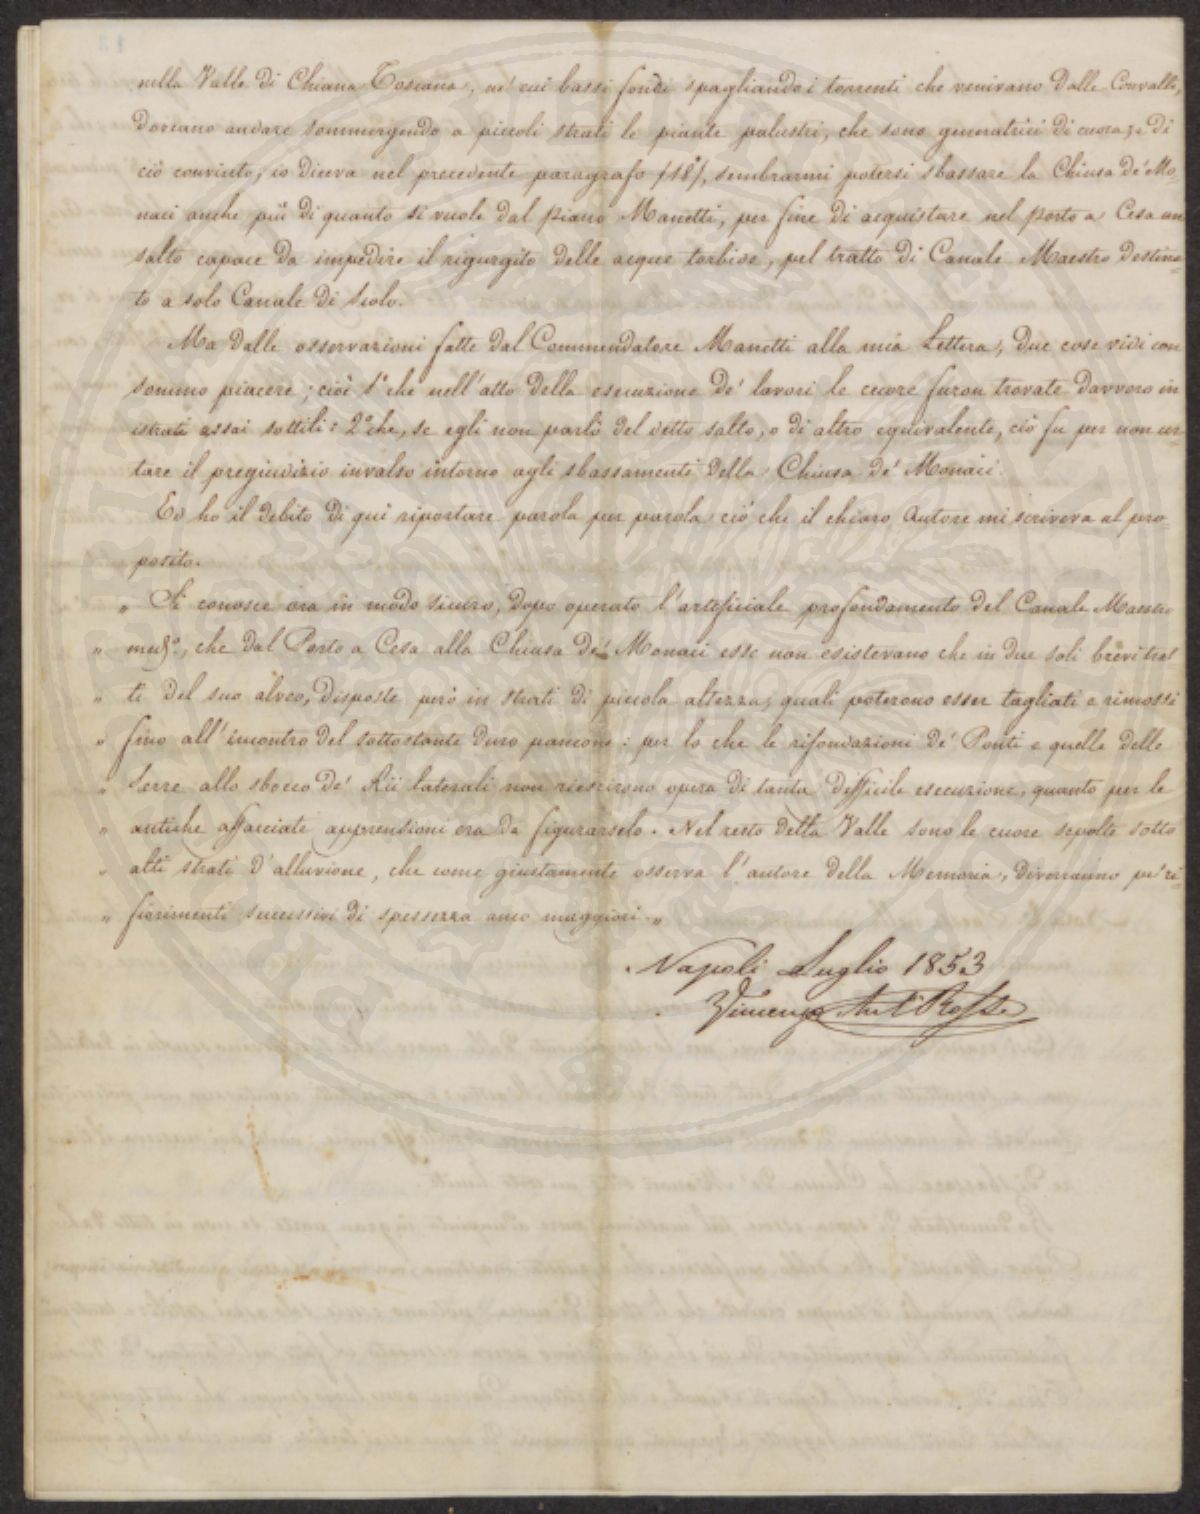 nella Valle di Chiana Toscana, ne' cui bassi fondi spagliando i torrenti che venivano dalle Convalli,
doveano andare sommergendo a piccoli strati le piante palustri, che sono generatrici di cuora; e di
ciò convinto, io diceva nel precedente paragrafo (18), sembrarmi potersi sbassare la Chiusa de' Mo-
naci anche più di quanto si vuole dal piano Manetti, per fine di acquistare nel Porto a Cesa un
salto capace da impedire il rigurgito delle acque torbide, pel tratto di Canale Maestro destina-
to a solo Canale di scolo.
Ma dalle osservazioni fatte dal Commendatore Manetti alla mia Lettera, due cose vidi con
sommo piacere; cioè 1° che nell'atto della esecuzione de' lavori le cuore furon trovate davvero in
istrati assai sottili: 2° che, se egli non parlò del detto salto, o di altro equivalente, ciò fu per non ur-
tare il pregiudizio invalso intorno agli sbassamenti della Chiusa de' Monaci.
Ed ho il debito di qui riportare parola per parola ciò che il chiaro Autore mi scriveva al pro-
posito.
„ Si conosce ora in modo sicuro, dopo operato l'artificiale profondamento del Canale Maestro
„ med.°, che dal Porto a Cesa alla Chiusa de' Monaci esse non esistevano che in due soli brevi trat
„ ti del suo alveo, disposte però in strati di piccola altezza, quali poterono esser tagliati e rimossi
„ fino all'incontro del sottostante duro pancone: per lo che le rifondazioni de' Ponti e quelle delle
„ Serre allo sbocco de' Rii laterali non riescirono opera di tanta difficile esecuzione, quanto per le
„ antiche affacciate apprensioni era da figurarselo. Nel resto della Valle sono le cuore sepolte sotto
„ alti strati d'alluvione, che come giustamente osserva l'autore della Memoria, diverranno pe' ri-
„ fiorimenti successivi di spessezza anco maggiori. „
Napoli Luglio 1853
Vincenzo Ant° Rossi